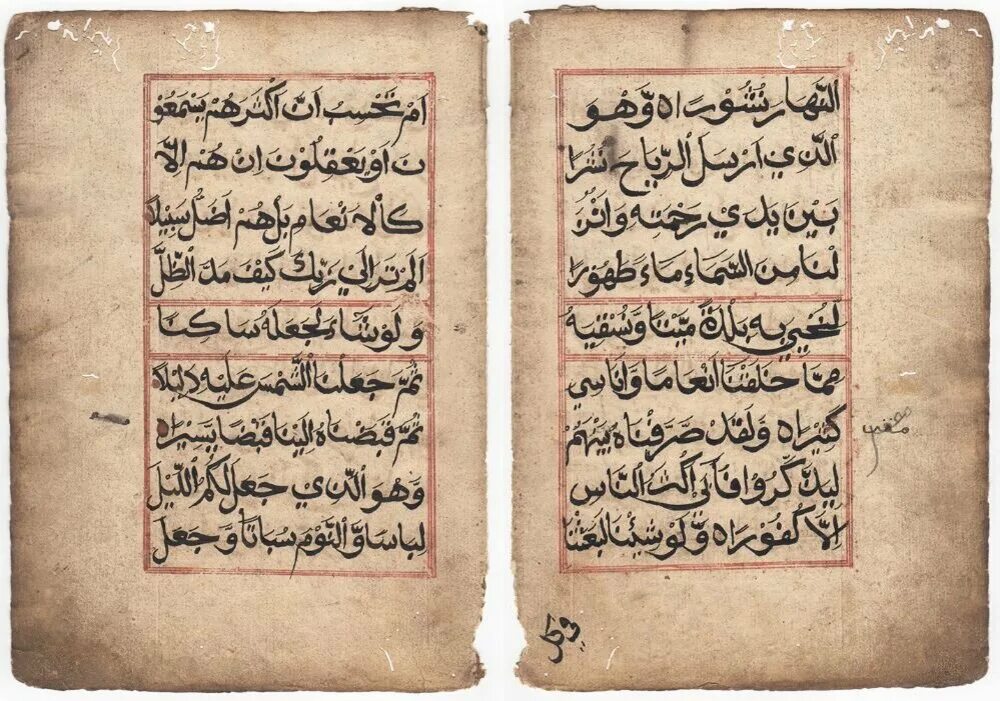 اَمْ تَحْسِبُ اَنَّ اَكْثَرَهُمْ يَسْمَعُوْ
نَ اَوْ يَعْقِلُوْنَ اِنْ هُمْ اِلَّا
كَالْاَنْعَامِ بَلْ هُمْ اَضَلُّ سَبِيْلًا
اَلَمْ تَرَ اِلٰي رَبِّكَ كَيْفَ مَدَّ الظِّلَّ
وَلَوْ شَاءَ لَجَعَلَهُ سَاكِنًا
ثُمَّ جَعَلْنَا الشَّمْسَ عَلَيْهِ دَلِيْلًا
ثُمَّ قَبَضْنَاهُ اِلَيْنَا قَبْضًا يَسِيْرًا ه
وَهُوَ الَّذِي جَعَلَ لَكُمُ اللَّيْلَ
لِبَاسًا وَّالنَّوْمَ سُبَاتًا وَّجَعَلَ
النَّهَارَ نُشُوْرًا ه وَّهُوَ
الَّذِي اَرْسَلَ الرِّيَاحَ نُشُرًا
بَيْنَ يَدَيْ رَحْمَتِهِ وَاَنْزَ
لْنَا مِنَ السَّمَاءِ مَاءً طَهُوْرًا
لِنُحْيِيَ بِهِ بَلْدَةً مَيْتًا وَّنُسْقِيَهُ
مِمَّا خَلَقْنَا اَنْعَامًا وَّاَنَاسِيَّ
كَثِيْرًا ه وَلَقَدْ صَرَّفْنَاهُ بَيْنَهُمْ
لِيَذَّكَّرُوْا فَاَبٰى اَكْثَرُ النَّاسِ
اِلَّا كُفُوْرًا ه وَّلَوْ شِئْنَا لَبَعَثْنَا